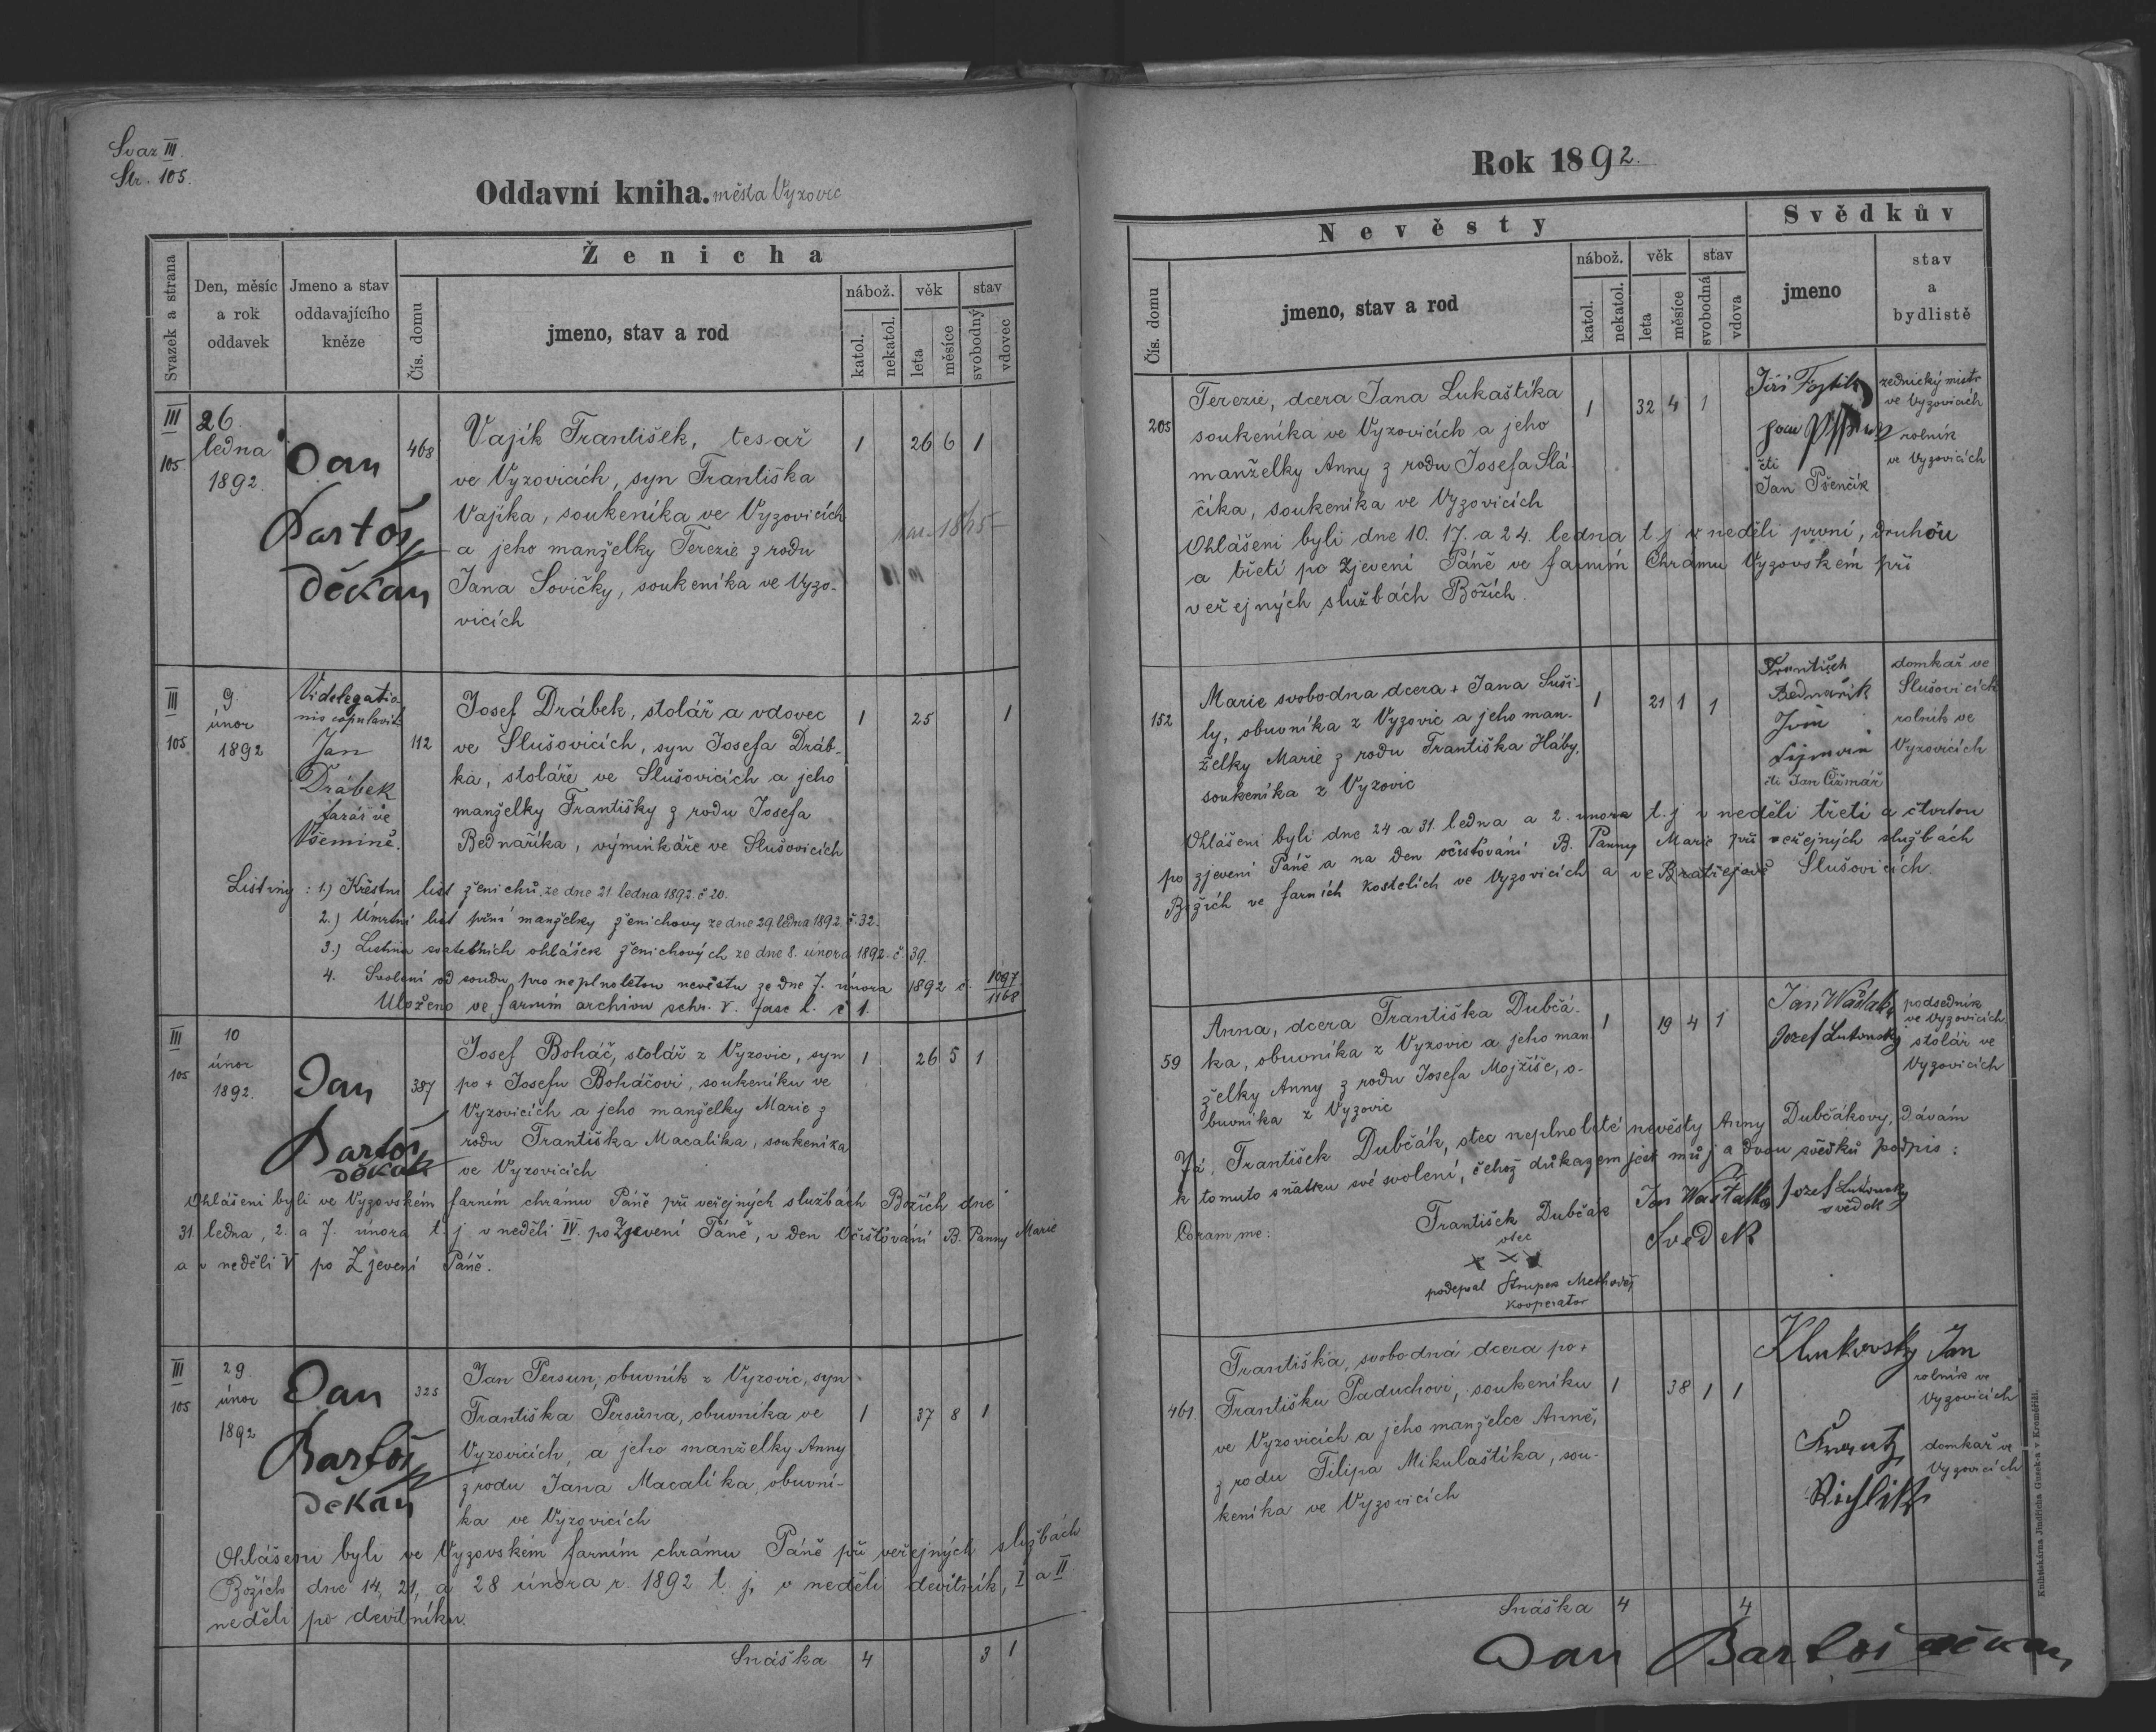 Svaz III.
Str. 105.
Oddavní kniha. města Vyzovic
Svazek a strana
Den, měsíc a rok oddavek
Jmeno a stav oddavajícího kněze
Ženicha
Čís. domu
jmeno, stav a rod
nábož.
věk
stav
katol.
nekatol.
leta
měsíce
svobodný
vdovec
III
105.
26.
ledna
1892.
Jan
Bartoš
děkan
468
Vajík František, tesař
ve Vyzovicích, syn Františka
Vajíka, soukeníka ve Vyzovicích
a jeho manželky Terezie z rodu
Jana Sovičky, soukeníka ve Vyzo-
vicích
1 26 6 1
III
105
9
únor
1892
Vi delegatio-
nis copulavit
Jan
Drábek
farář ve
Všemině.
112
Josef Drábek, stolář a vdovec
ve Slušovicích, syn Josefa Dráb-
ka, stoláře ve Slušovicích a jeho
manželky Františky z rodu Josefa
Bednaříka, výminkáře ve Slušovicích
1 25 1
Listiny: 1.) Křestní list ženichů. ze dne 21. ledna 1892. č 20.
2.) Úmrtní list první manželky ženichovy ze dne 29. ledna 1892 č. 32.
3.) Listina svatebních ohlášek ženichových ze dne 8. února 1892. č. 39.
4. Svolení od soudu pro neplnoletou nevěstu ze dne 7. února 1892 č. 1097/1168
Uloženo ve farním archivu schr. V. fasc l. č 1.
III
105
10
únor
1892.
Jan
Bartoš
děkan
387
Josef Boháč, stolář z Vyzovic, syn
po + Josefu Boháčovi, soukeníku ve
Vyzovicích a jeho manželky Marie z
rodu Františka Macalíka, soukeníka
ve Vyzovicích
1 26 5 1
Ohlášeni byli ve Vyzovském farním chrámu Páně při veřejných službách Božích dne
31. ledna, 2. a 7. února t. j v neděli IV. po Zjevení Páně, v den Očišťování B. Panny Marie
a v neděli V po Zjevení Páně.
III
105
29.
únor
1892
Jan
Bartoš
děkan
325
Jan Persun, obuvník z Vyzovic, syn
Františka Persůna, obuvníka ve
Vyzovicích, a jeho manželky Anny
z rodu Jana Macalíka, obuvní-
ka ve Vyzovicích
1 37 8 1
Ohlášeni byli ve Vyzovském farním chrámu Páně při veřejných službách
Božích dne 14, 21, a 28 února r. 1892 t. j. v neděli devítník, I a II
neděli po devítníku.
Snáška 4 3 1
Rok 1892.
Nevěsty
Svědkův
Čís. domu
jmeno, stav a rod
nábož.
věk
stav
katol.
nekatol.
leta
měsíce
svobodná
vdova
jmeno
stav a bydlistě
205
Terezie, dcera Jana Lukaštíka
soukeníka ve Vyzovicích a jeho
manželky Anny z rodu Josefa Slá-
číka, soukeníka ve Vyzovicích
1 32 4 1
Jiří
zednický mistr
ve Vyzovicích
rolník
ve Vyzovicích
čti
Jan Pšenčík
Ohlášeni byli dne 10. 17. a 24. ledna t. j v neděli první, druhou
a třetí po Zjevení Páně ve farním Chrámu Vyzovském při
veřejných službách Božích.
152
Marie svobodna dcera + Jana Suši-
ly, obuvníka z Vyzovic a jeho man-
želky Marie z rodu Františka Háby,
soukeníka z Vyzovic
1 21 1 1
František
Bednařík
domkař ve
Slušovicích
rolník ve
Vyzovicích
čti Jan Čižmář
Ohlášeni byli dne 24 a 31. ledna a 2. února t. j v neděli třetí a čtvrtou
po zjevení Páně a na den očisťování B. Panny Marie při veřejných službách
Božích ve farních kostelích ve Vyzovicích a ve Slušovicích.
59
Anna, dcera Františka Dubčá-
ka, obuvníka z Vyzovic a jeho man-
želky Anny z rodu Josefa Mojžíše, o-
buvníka z Vyzovic
1 19 4 1
Jan Wašťák
podsedník
ve Vyzovicích
Jozef Lutonský
stolář ve
Vyzovicích
Já, František Dubčák, otec neplnoleté nevěsty Anny Dubčákovy, dávám
k tomuto sňatku své svolení, čehož důkazem jest můj a dvou svědků podpis:
Coram me:
František Dubčák
otec
x x x
podepsal Strupek Methoděj
kooperator
Svědek
Jozef Lutonský
svědek
461.
Františka, svobodná dcera po +
Františku Paduchovi, soukeníku
ve Vyzovicích a jeho manželce Anně,
z rodu Filipa Mikulaštíka, sou-
keníka ve Vyzovicích
1 38 1 1
Klukovsky Jan
rolník ve
Vyzovicích
domkař ve
Vyzovicích
Snáška 4 4
Jan Bartoš děkan
Knihtiskárna Jindřicha Guseka v Kroměříži.